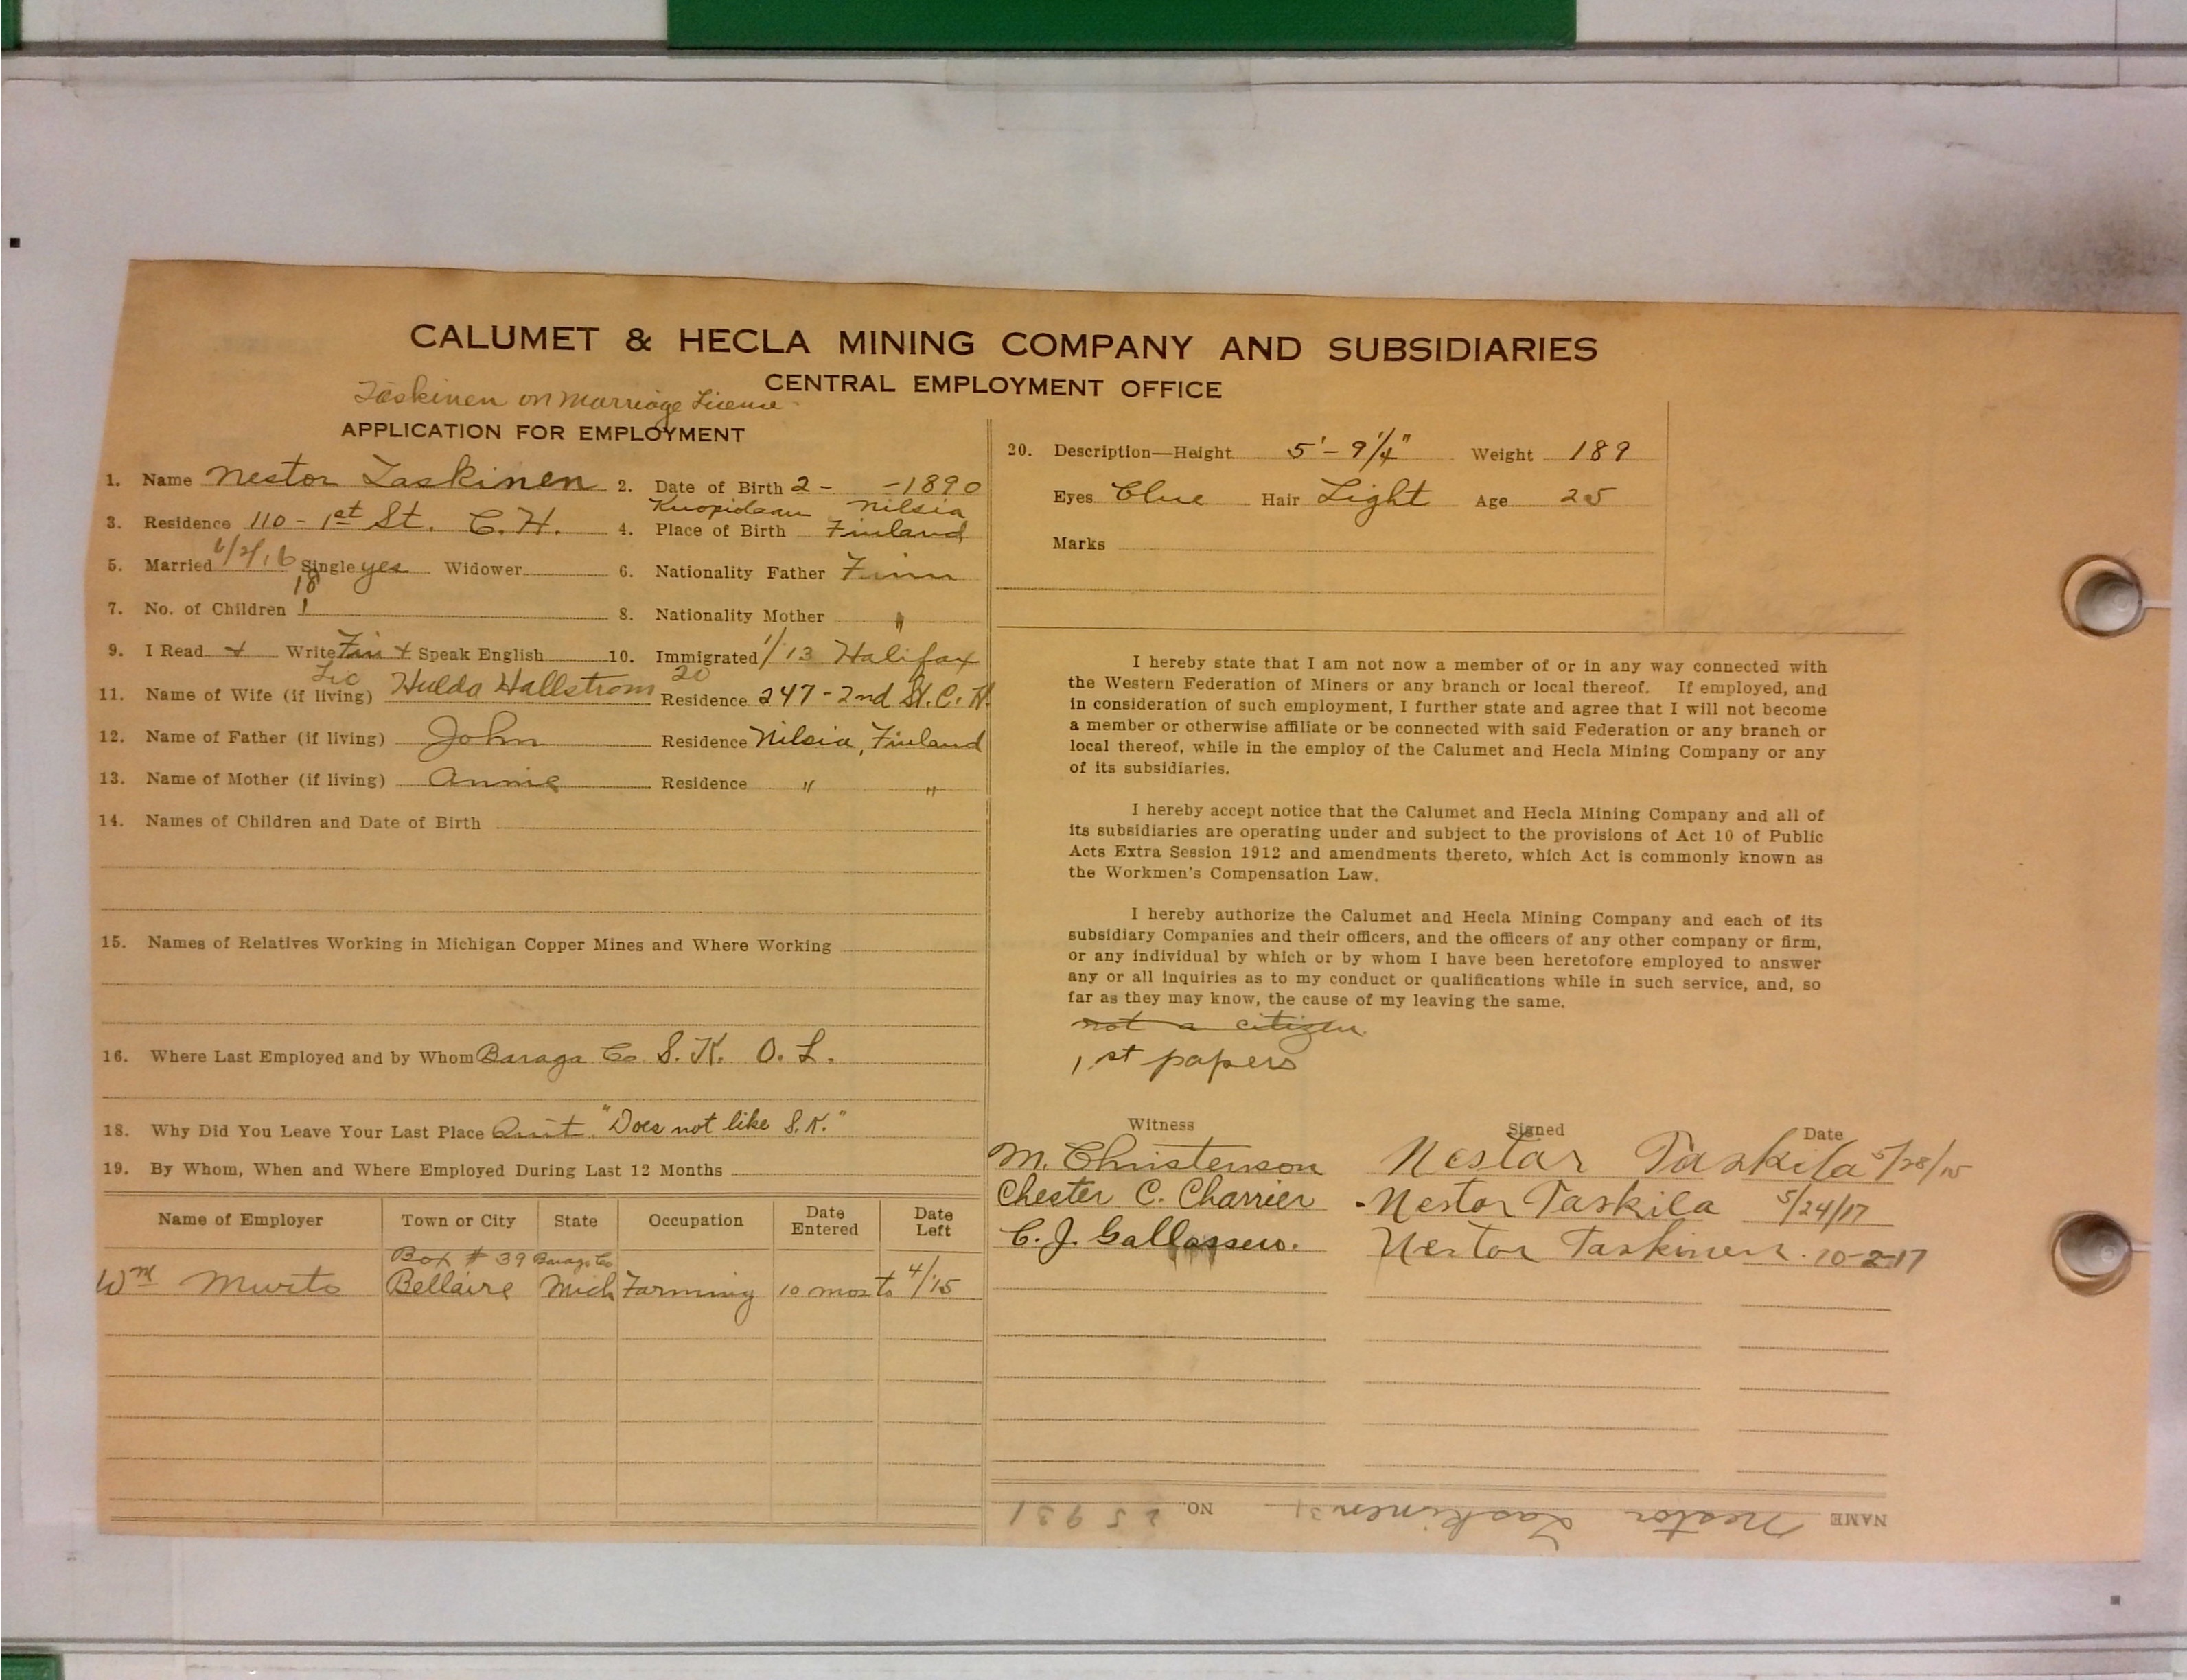 CALUMET & HECLA MINING COMPANY AND SUBSIDIARIES
CENTRAL EMPLOYMENT OFFICE
Taskinen on Marriage License
APPLICATION FOR EMPLOYMENT
1. Name Nestor Taskinen 2. Date of Birth 2 - -1890
3. Residence 110 - 1st St. C. H. 4. Place of Birth Nilsia Finland
5. Married 6/2/16 Single yes Widower 6. Nationality Father Finn
7. No. of Children 1 8. Nationality Mother "
9. I Read + Write Fin + Speak English 10. Immigrated 1/13 Halifax
11. Name of Wife (if living) Hulda Hallstrom 20 Residence 247 - 2nd St. C. H.
12. Name of Father (if living) John Residence Nilsia, Finland
13. Name of Mother (if living) Annie Residence " "
14. Names of Children and Date of Birth
15. Names of Relatives Working in Michigan Copper Mines and Where Working
16. Where Last Employed and by Whom Baraga Co S. K. O. L.
18. Why Did You Leave Your Last Place Quit "Does not like S.K."
19. By Whom, When and Where Employed During Last 12 Months
Name of Employer Town or City State Occupation Date Entered Date Left
Box # 39 Baraga Co
Wm Murto Bellaire Mich Farming 10 mos to 4/15
20. Description—Height 5' - 9 1/4" Weight 189
Eyes Blue Hair Light Age 25
Marks
I hereby state that I am not now a member of or in any way connected with
the Western Federation of Miners or any branch or local thereof. If employed, and
in consideration of such employment, I further state and agree that I will not become
a member or otherwise affiliate or be connected with said Federation or any branch or
local thereof, while in the employ of the Calumet and Hecla Mining Company or any
of its subsidiaries.
I hereby accept notice that the Calumet and Hecla Mining Company and all of
its subsidiaries are operating under and subject to the provisions of Act 10 of Public
Acts Extra Session 1912 and amendments thereto, which Act is commonly known as
the Workmen's Compensation Law.
I hereby authorize the Calumet and Hecla Mining Company and each of its
subsidiary Companies and their officers, and the officers of any other company or firm,
or any individual by which or by whom I have been heretofore employed to answer
any or all inquiries as to my conduct or qualifications while in such service, and, so
far as they may know, the cause of my leaving the same.
not a citizen
1st papers
Witness Signed Date
M. Christenson Nestar Taskila 5/28/15
Chester C. Charrier Nestor Taskila 5/24/17
C. J. Nestor Taskinen. 10-2-17
NAME Nestor Taskinen NO. 25931